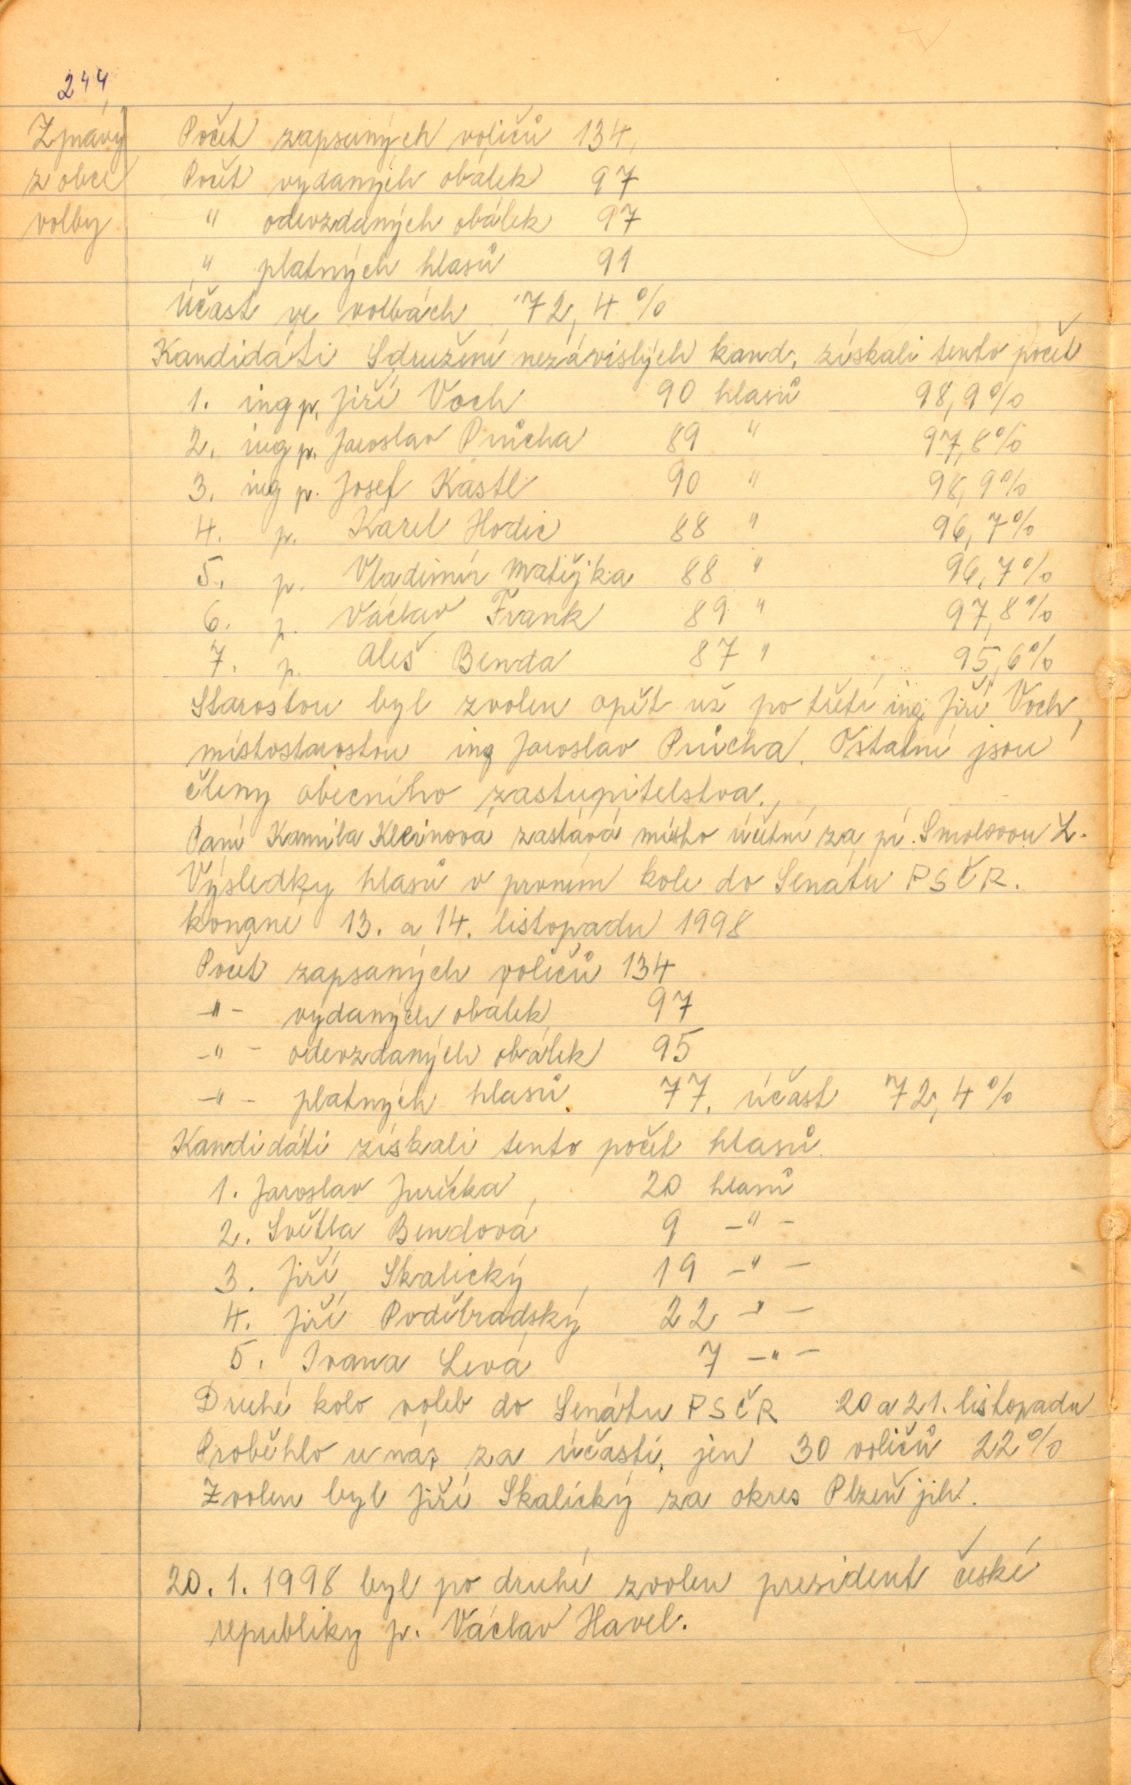 244
Zprávy
z obce
volby
Počet zapsaných voličů 134
Počet vydaných obálek 97
" odevzdaných obálek 97
" platných hlasů 91
Účast ve volbách 72,4%
Kandidáti Sdružení nezávislých kand. získali tento počet
1. ing p. Jiří Voch 90 hlasů 98,9%
2. ing p. Jaroslav Průcha 89 " 97,8%
3. ing p. Josef Kastl 90 " 98,9%
4. p. Karel Hodic 88 " 96,7%
5. p. Vladimír Matějka 88 " 96,7%
6. p. Václav Frank 89 " 97,8%
7. p. Aleš Benda 87 " 95,6%
Starostou byl zvolen opět už po třetí ing. Jiří Voch,
místostarostou ing Jaroslav Průcha. Ostatní jsou
členy obecního zastupitelstva.
Paní Kamila Kleinová zastává místo účetní za pí. Smolovou L.
Výsledky hlasů v prvním kole do Senátu PSČR.
konane 13. a 14. listopadu 1998
Počet zapsaných voličů 134
-"- vydaných obálek 97
-"- odevzdaných obálek 95
-"- platných hlasů 77. účast 72,4%
Kandidáti získali tento počet hlasů
1. Jaroslav Jurička 20 hlasů
2. Světla Bendová 9 -"-
3. Jiří Skalický 19 -"-
4. Jiří Poděbradský 22 -"-
5. Ivana Levá 7 -"-
Druhé kolo voleb do Senátu PSČR 20 a 21. listopadu
Proběhlo u nás za účasti jen 30 voličů 22%
Zvolen byl Jiří Skalický za okres Plzeň jih.
20. 1. 1998 byl po druhé zvolen president české
republiky p. Václav Havel.